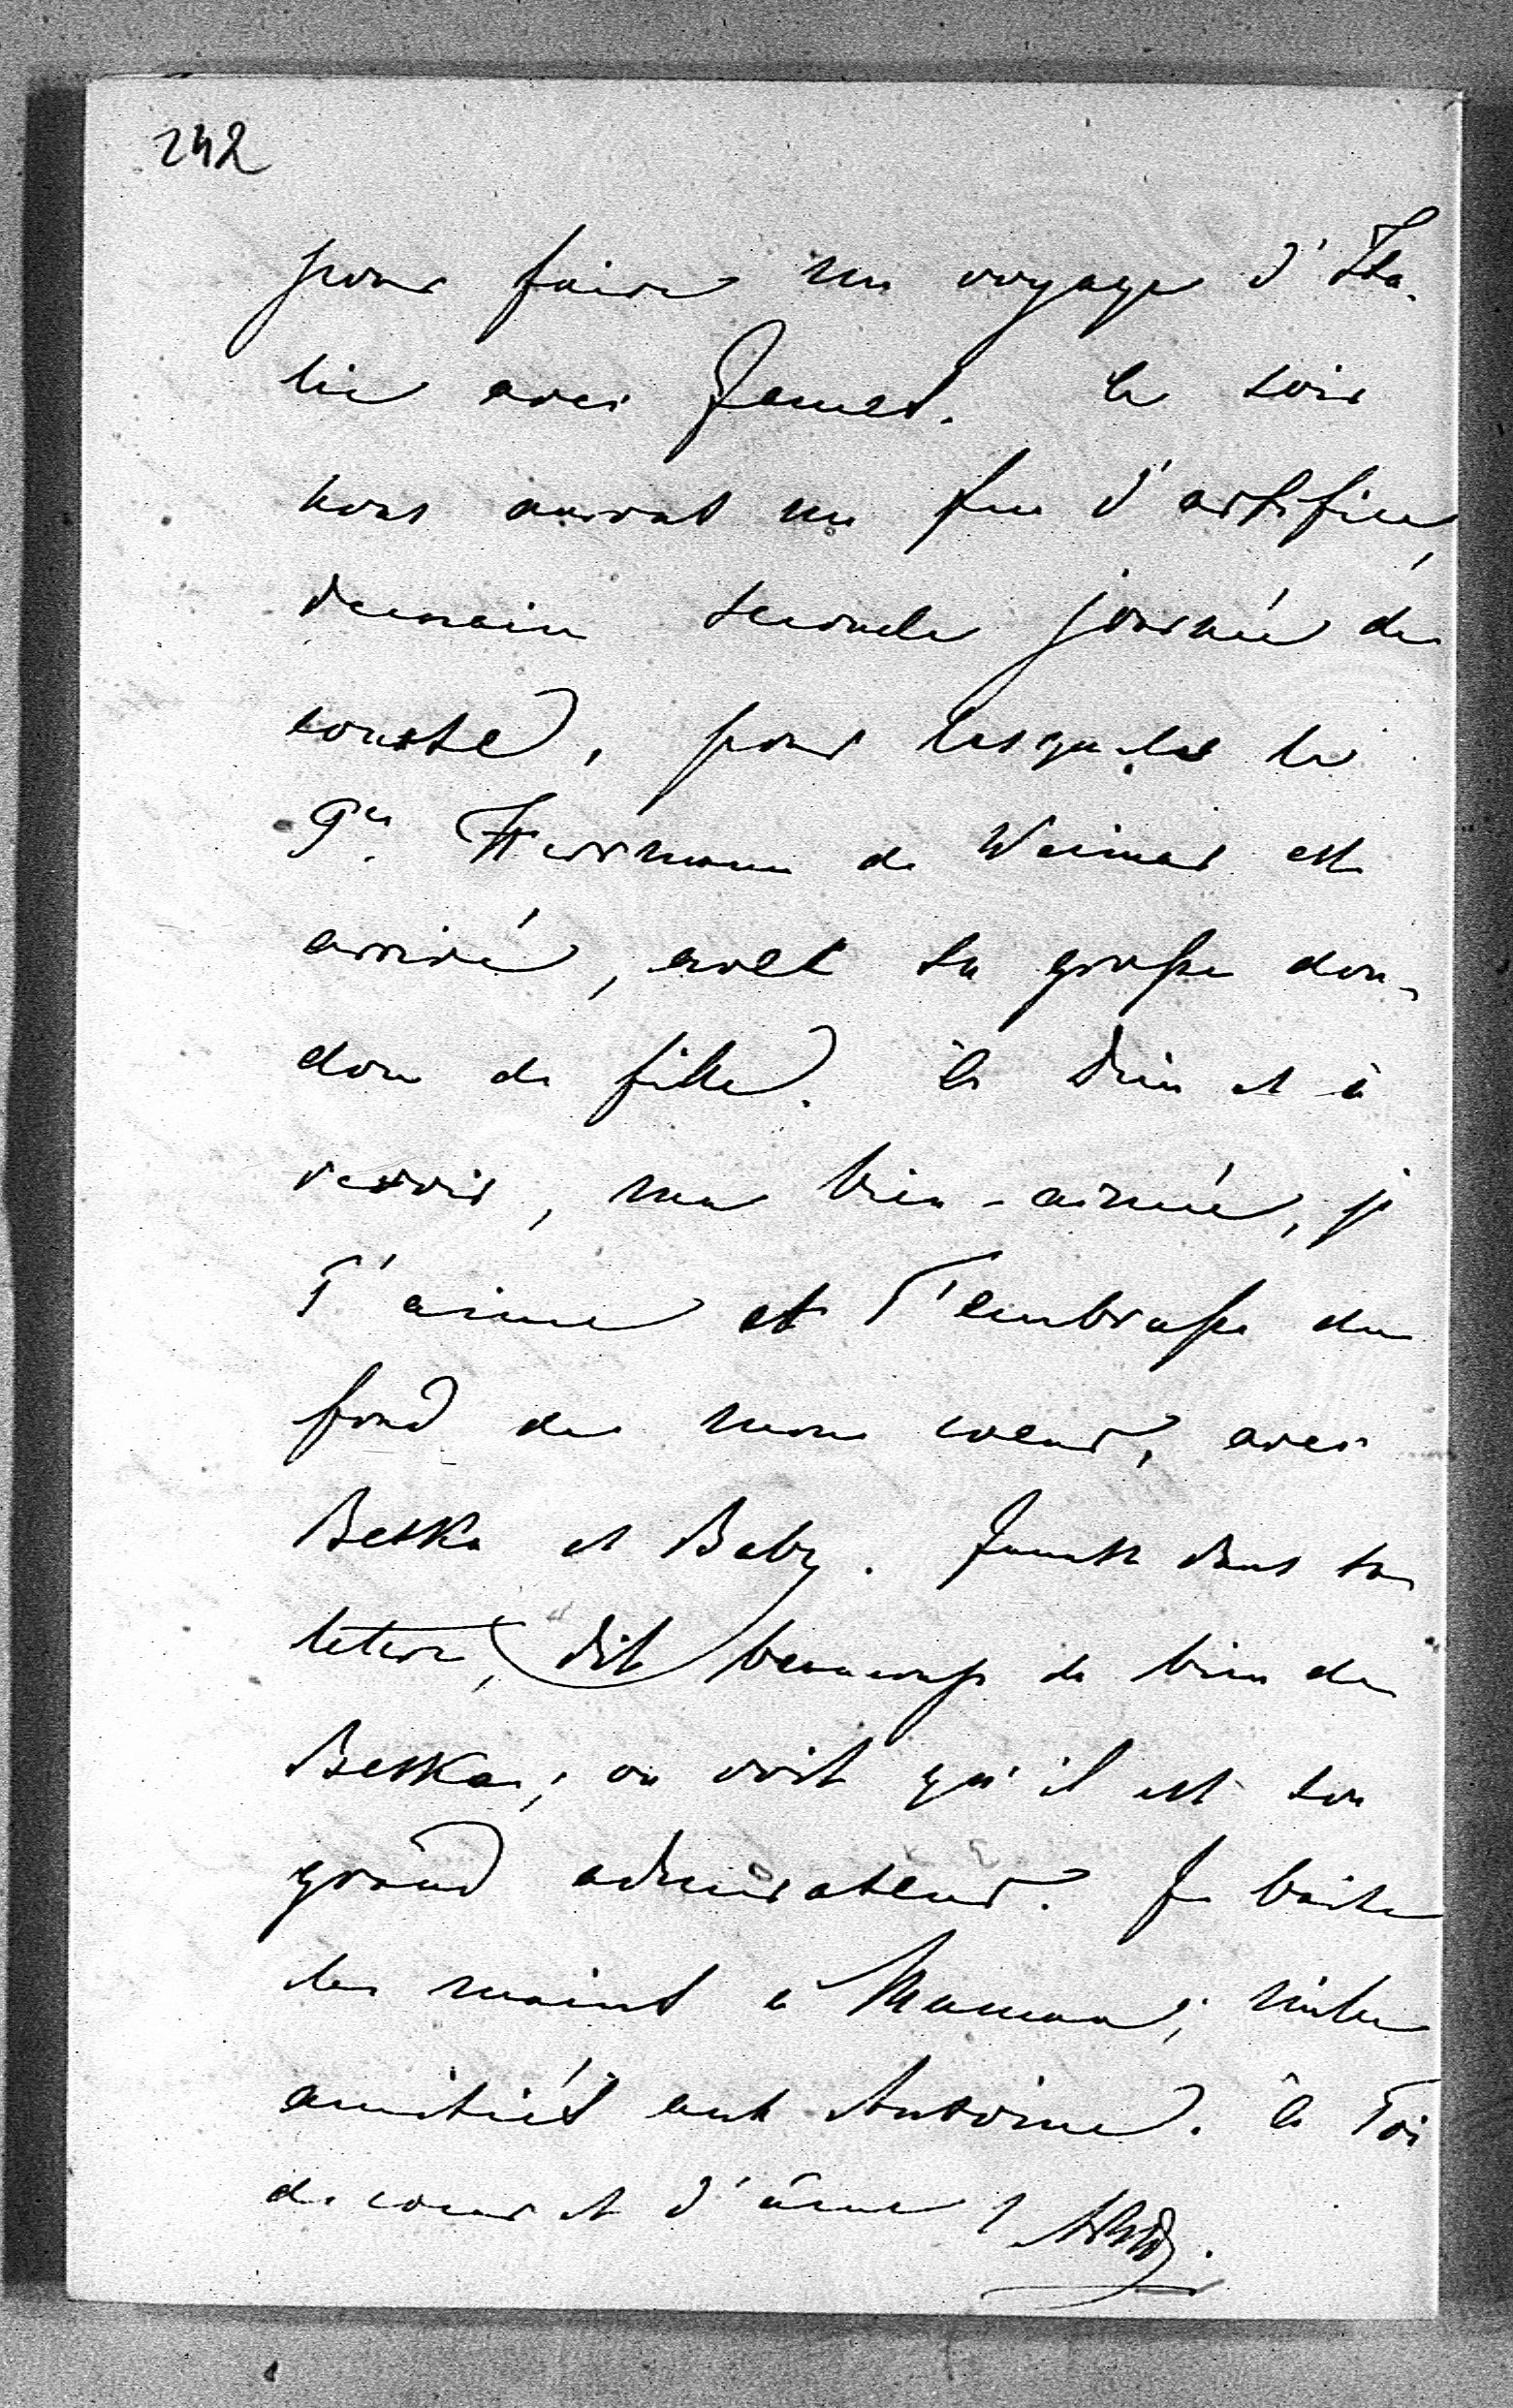 242
pour faire un voyage d'Ita-
lie avec James. Ce soir
nous aurons un feu d'artifice,
demain seconde journée de
course, pour lesquelles le
Pce Herrmann de Weimar est
arrivé, avec sa grosse don-
don de fille. à Dieu et à
revoir, ma bien-aimée, je
T'aime et T'embrasse du
fond de mon coeur, avec
Betka et Baby. James dans sa
lettre, dit beaucoup de bien de
Betka; on voit qu'il est son
grand admirateur. Je baise
les mains à Maman; mille
amitiés aux Antoine. à Toi
de coeur et d'âme!